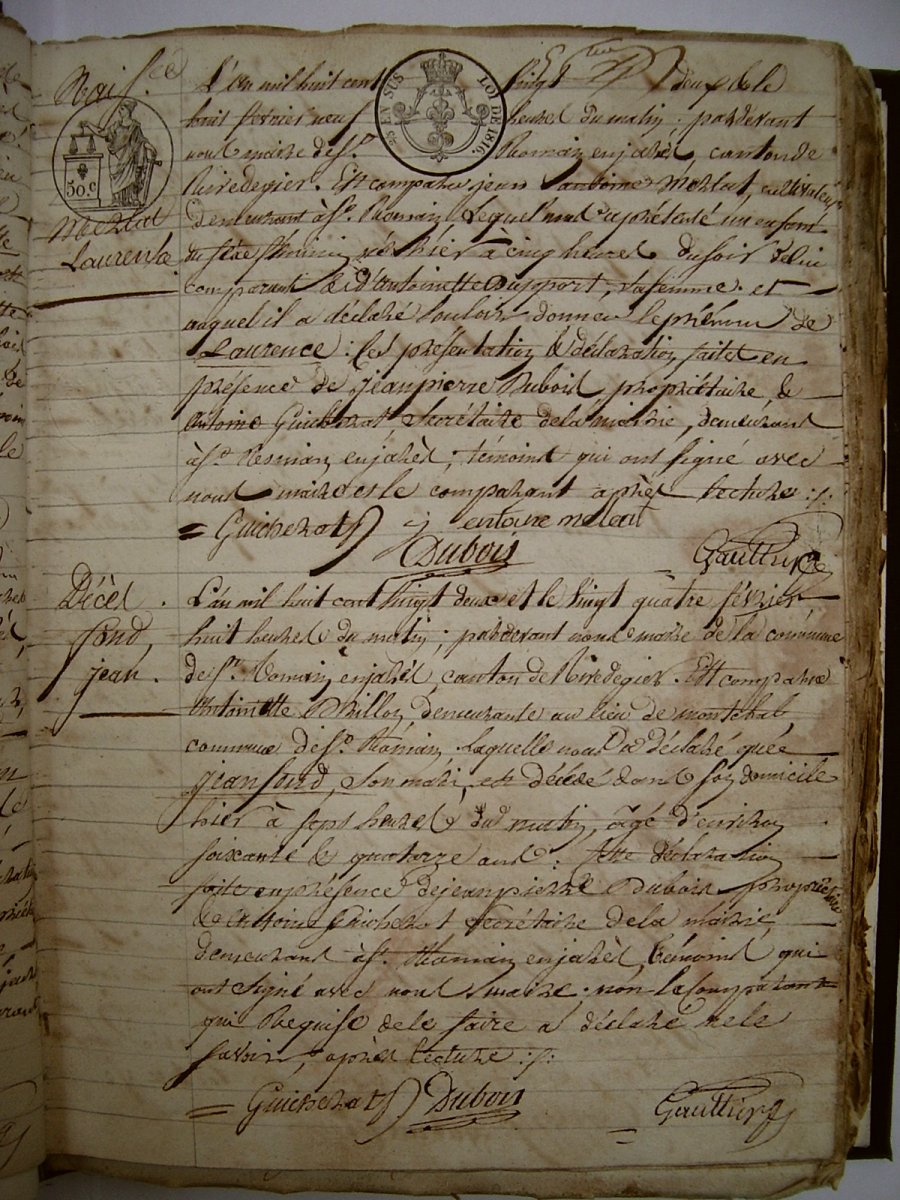 Naiss.ce
Merlat
Laurence
50.C
25 EN SUS LOI DE 1816.
L'an mil huit cent Vingt deux & le
huit février neuf heures du matin, pardevant
nous maire de St. Romain en jarêt, canton de
Rivedegier. Est comparu jean antoine Merlat, cultivateur
demeurant à St. Romain, Lequel nous a présenté un enfant
du sèxe féminin né hier à cinq heures du soir de lui
comparant & d'Antoinette Dupport, sa femme, et
auquel il a déclaré Vouloir donner le prénom de
Laurence : Ces présentation & déclaration faites en
présence de jeanpierre Dubois propriétaire, &
Antoine Guicherat Secrétaire de la mairie, demeurant
à St. Romain en jarêt, témoins qui ont signé avec
nous maire et le comparant après lecture :/:
= Guicherat j antoine merlat
Dubois Gaulthier
Décès
fond,
jean.
L'an mil huit cent Vingt deux et le Vingt quatre février
huit heures du matin, pardevant nous maire de la commune
de St. Romain en jarêt, canton de Rivedegier. Est comparue
Antoinette demeurante au lieu de montchal,
commune de St. Romain, Laquelle nous a déclaré que
jean fond, Son mari, est décédé dans son domicile
hier à sept heures du matin, âgé d'environ
soixante & quatorze ans. Cette déclaration
faite en présence de jeanpierre Dubois propriétaire
& Antoine Guicherat Secrétaire de la mairie,
demeurant à St. Romain en jarêt, témoins qui
ont signé avec nous maire ; non la comparante
qui Requise de le faire a déclaré ne le
Savoir, après lecture :/:
= Guicherat Dubois Gaulthier